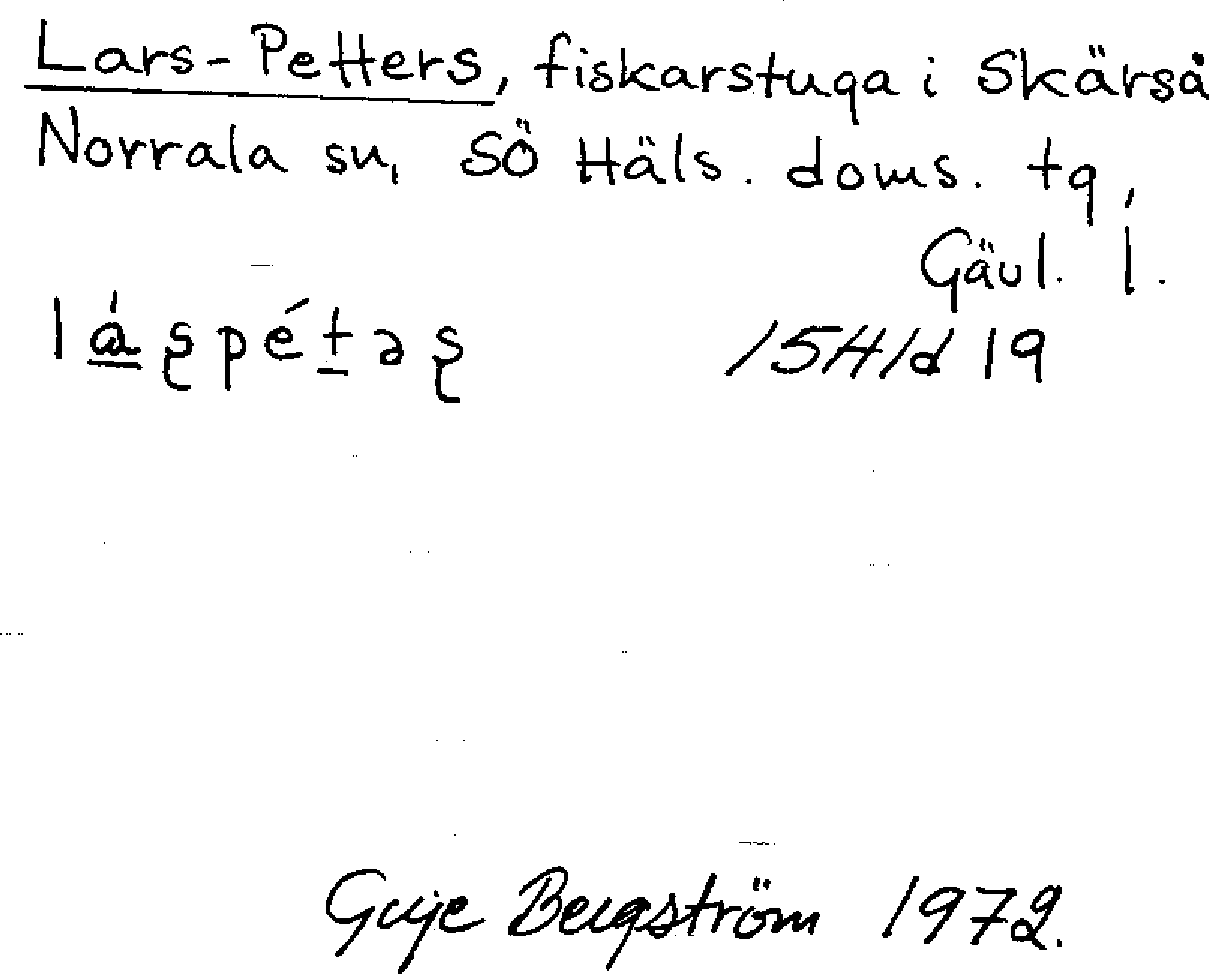 Lars-Petters, fiskarstuga i Skärså
Norrala sn, SÖ Häls. doms. tg,
Gävl. l.
lá̱ʂpét̲əʂ 15H1d 19
Bergström 1972.